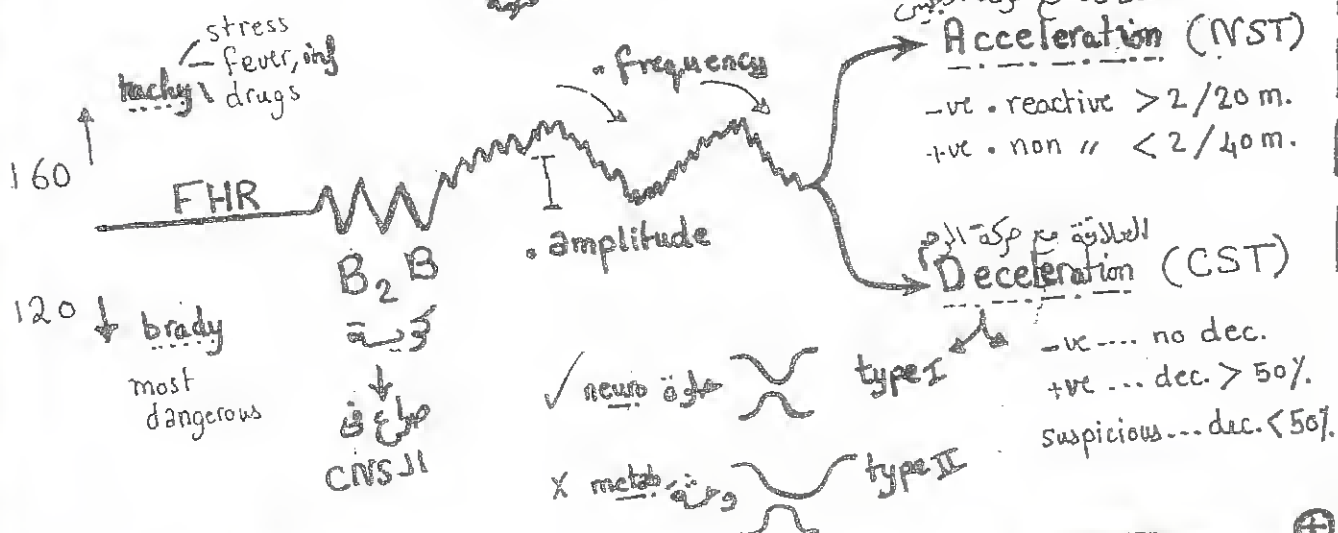 stress
fever, inf
tachy drugs
160
FHR
B₂B
120
brady
most
dangerous
صراع في
الـ CNS
• frequency
• amplitude
Acceleration (NST)
-ve • reactive > 2/20 m.
+ve • non 〃 < 2/40 m.
العلاقة مع حركة الرحم
Deceleration (CST)
-ve .... no dec.
+ve ... dec. > 50%.
suspicious... dec. < 50%.
✓ neuro حلوة type I
X metab وحشة type II